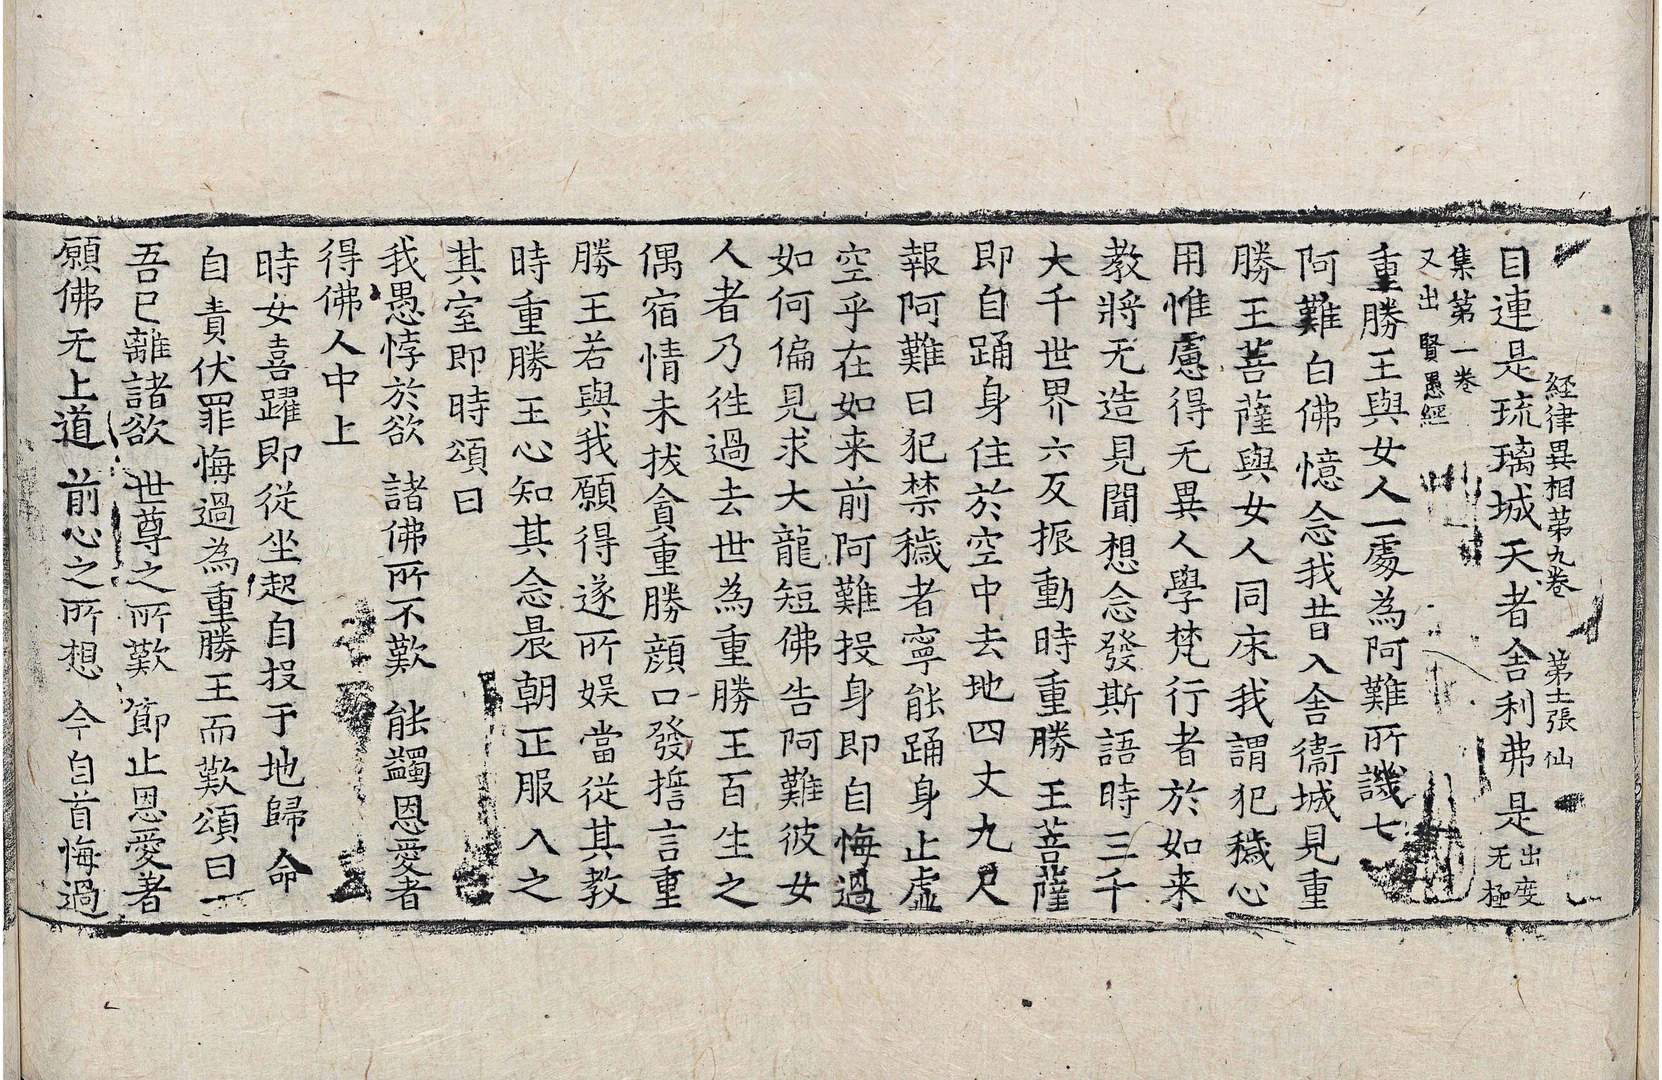 経律異相第九卷　第十二張　仙
目連是琉璃城天者舍利弗是出度无極
集第一卷又出賢愚經
重勝王與女人一處為阿難所譏七
阿難白佛憶念我昔入舍衛城見重
勝王菩薩與女人同床我謂犯穢心
用惟慮得无異人學梵行者於如来
教將无造見聞想念發斯語時三千
大千世界六反振動時重勝王菩薩
即自踊身住於空中去地四丈九尺
報阿難曰犯禁穢者寧能踊身止虛
空乎在如来前阿難投身即自悔過
如何偏見求大龍短佛告阿難彼女
人者乃徃過去世為重勝王百生之
偶宿情未拔貪重勝顏口發擔言重
勝王若與我願得遂所娛當從其教
時重勝王心知其念晨朝正服入之
其室即時頌曰
我愚悖於欲　諸佛所不歎　能蠲恩愛者
得佛人中上
時女喜躍即從坐起自投于地歸命
自責伏罪悔過為重勝王而歎頌曰
吾已離諸欲　世尊之所歎　節止恩愛者
願佛无上道　前心之所想　今自首悔過